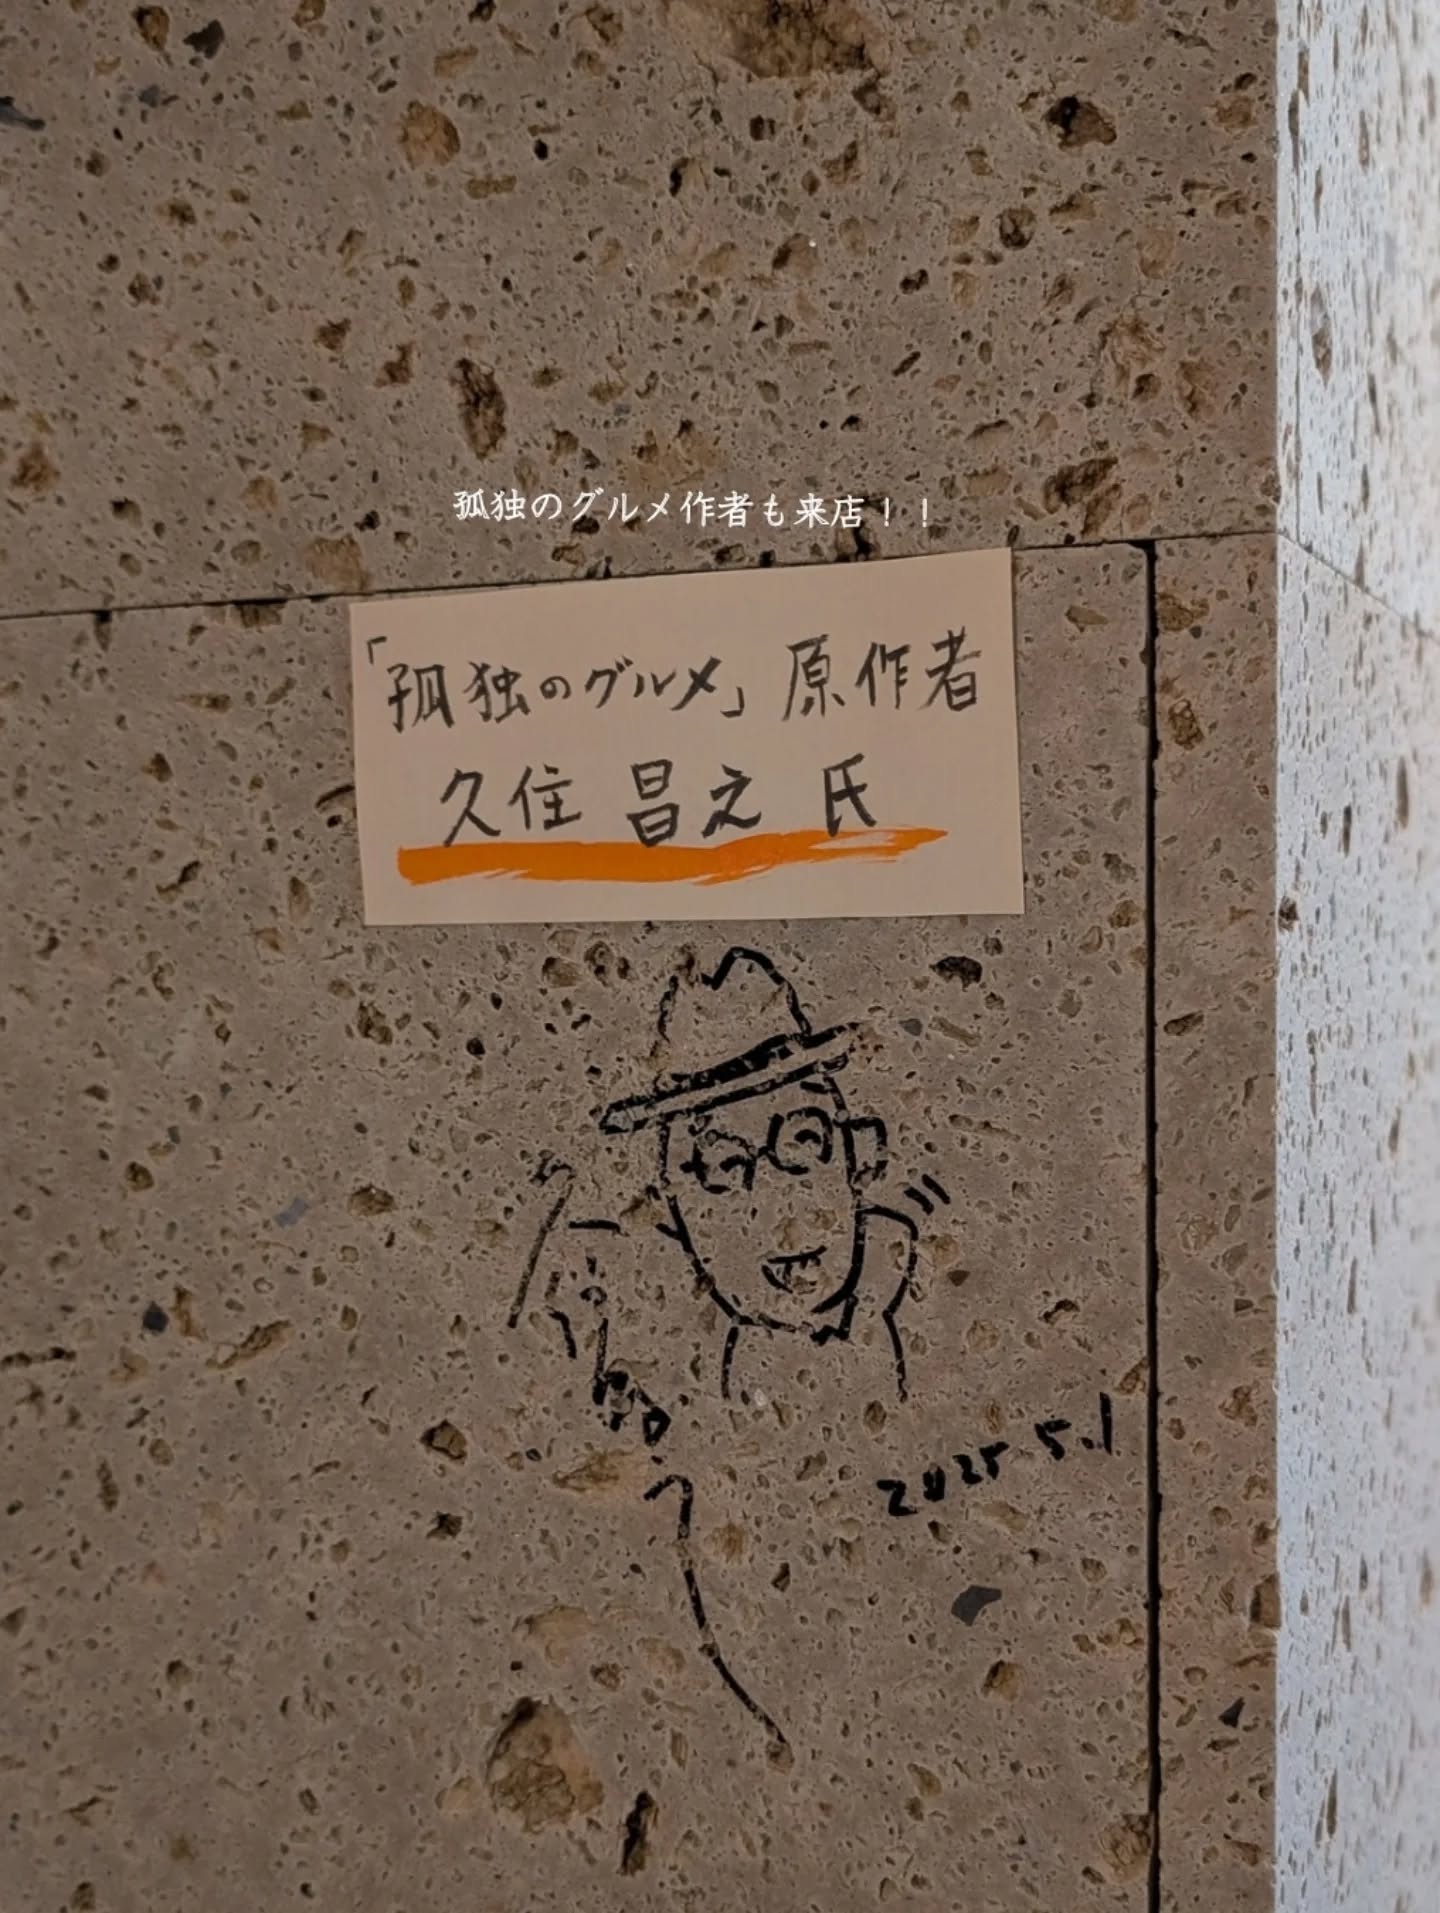 孤独のグルメ作者も来店！！
「孤独のグルメ」原作者
久住 昌之 氏
2025 5.1